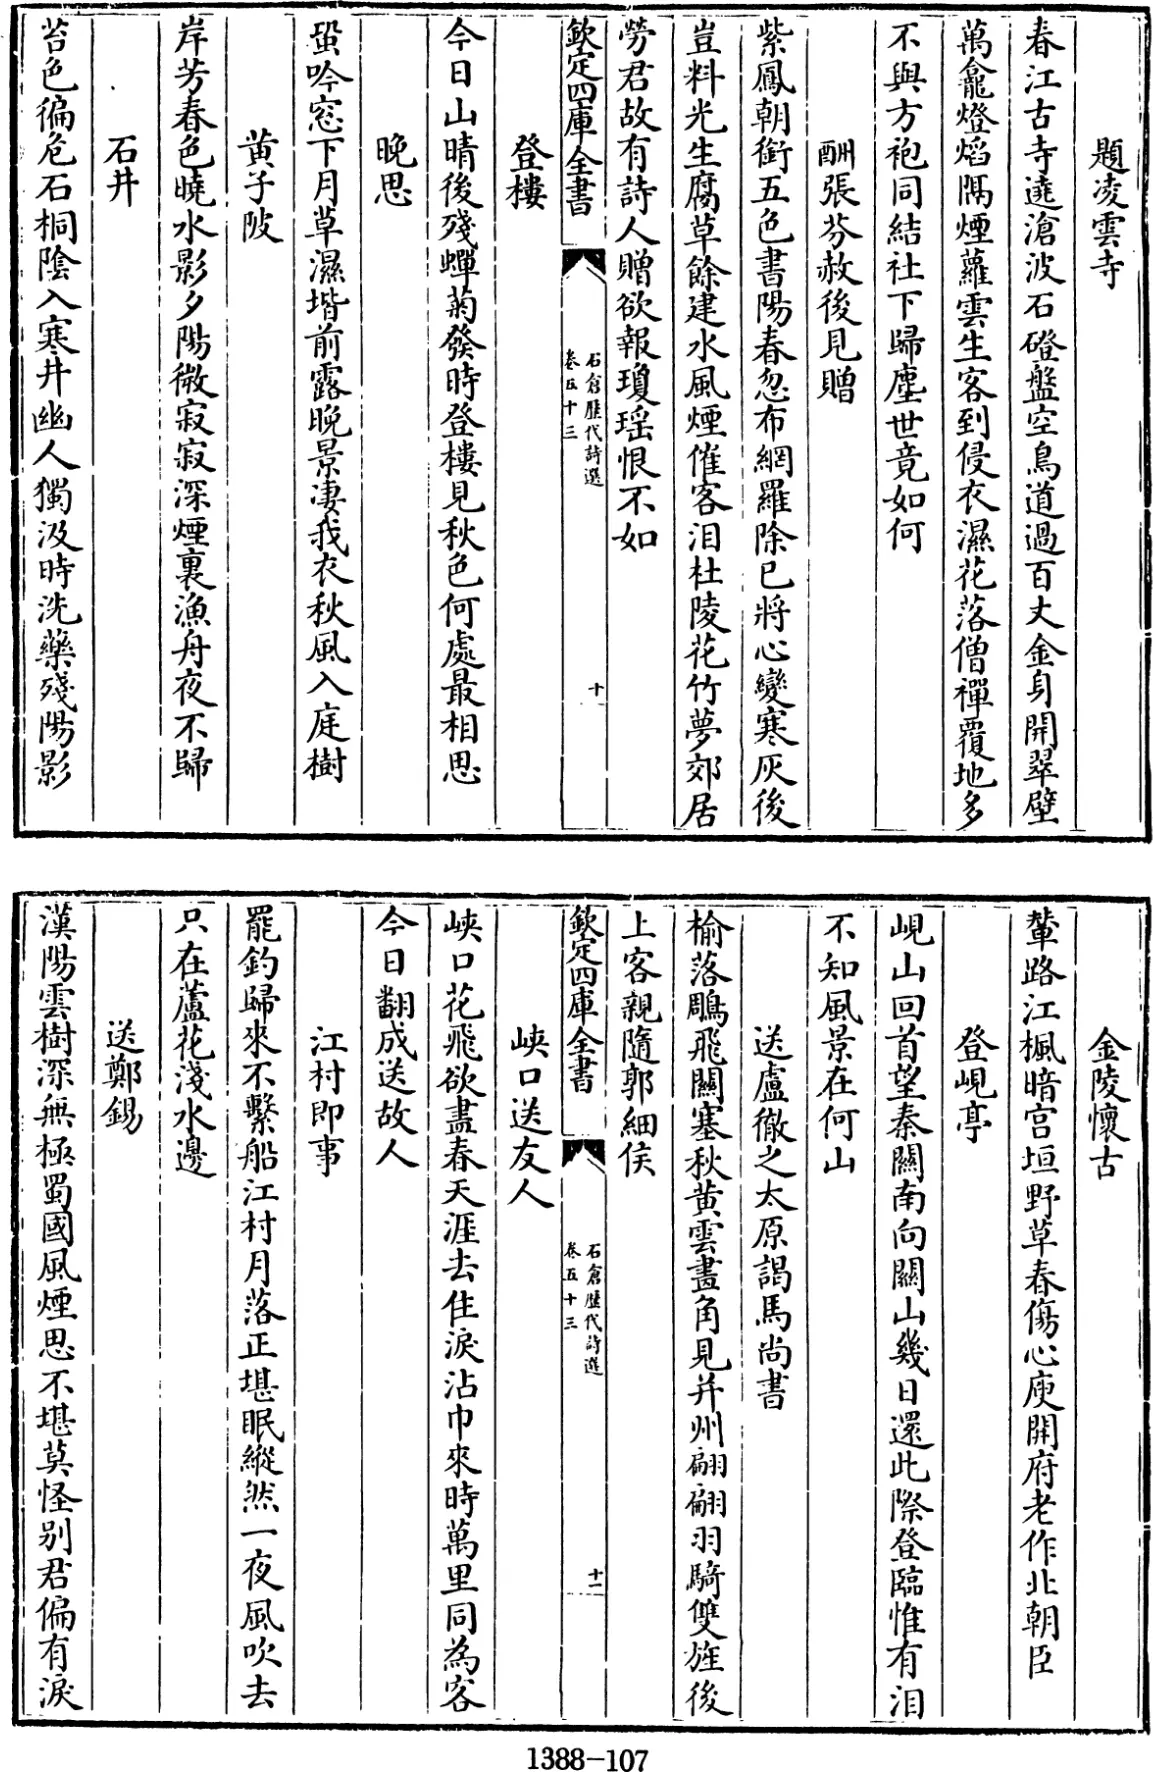 題凌雲寺
春江古寺遶滄波石磴盤空鳥道過百丈金身開翠壁
萬龕燈焰隔煙蘿雲生客到侵衣濕花落僧禪覆地多
不與方袍同結社下歸塵世竟如何
酬張芬赦後見贈
紫鳳朝銜五色書陽春忽布網羅除已將心變寒灰後
豈料光生腐草餘建水風煙催客泪杜陵花竹夢郊居
勞君故有詩人贈欲報瓊瑶恨不如
欽定四庫全書
石倉歷代詩選
卷五十三
十
登樓
今日山晴後殘蟬菊發時登樓見秋色何處最相思
晚思
蛩吟窓下月草濕堦前露晚景凄我衣秋風入庭樹
黄子陂
岸芳春色曉水影夕陽微寂寂深煙裏漁舟夜不歸
石井
苔色徧危石桐陰入寒井幽人獨汲時洗藥殘陽影
金陵懷古
輦路江楓暗宫垣野草春傷心庾開府老作北朝臣
登峴亭
峴山回首望秦關南向關山幾日還此際登臨惟有泪
不知風景在何山
送盧徹之太原謁馬尚書
榆落鵰飛關塞秋黄雲畫角見并州翩翩羽騎雙旌後
上客親隨郭細侯
欽定四庫全書
石倉歷代詩選
卷五十三
十一
峽口送友人
峽口花飛欲盡春天涯去住淚沾巾來時萬里同為客
今日翻成送故人
江村即事
罷釣歸來不繫船江村月落正堪眠縱然一夜風吹去
只在蘆花淺水邊
送鄭錫
漢陽雲樹深無極蜀國風煙思不堪莫怪别君偏有淚
1388-107